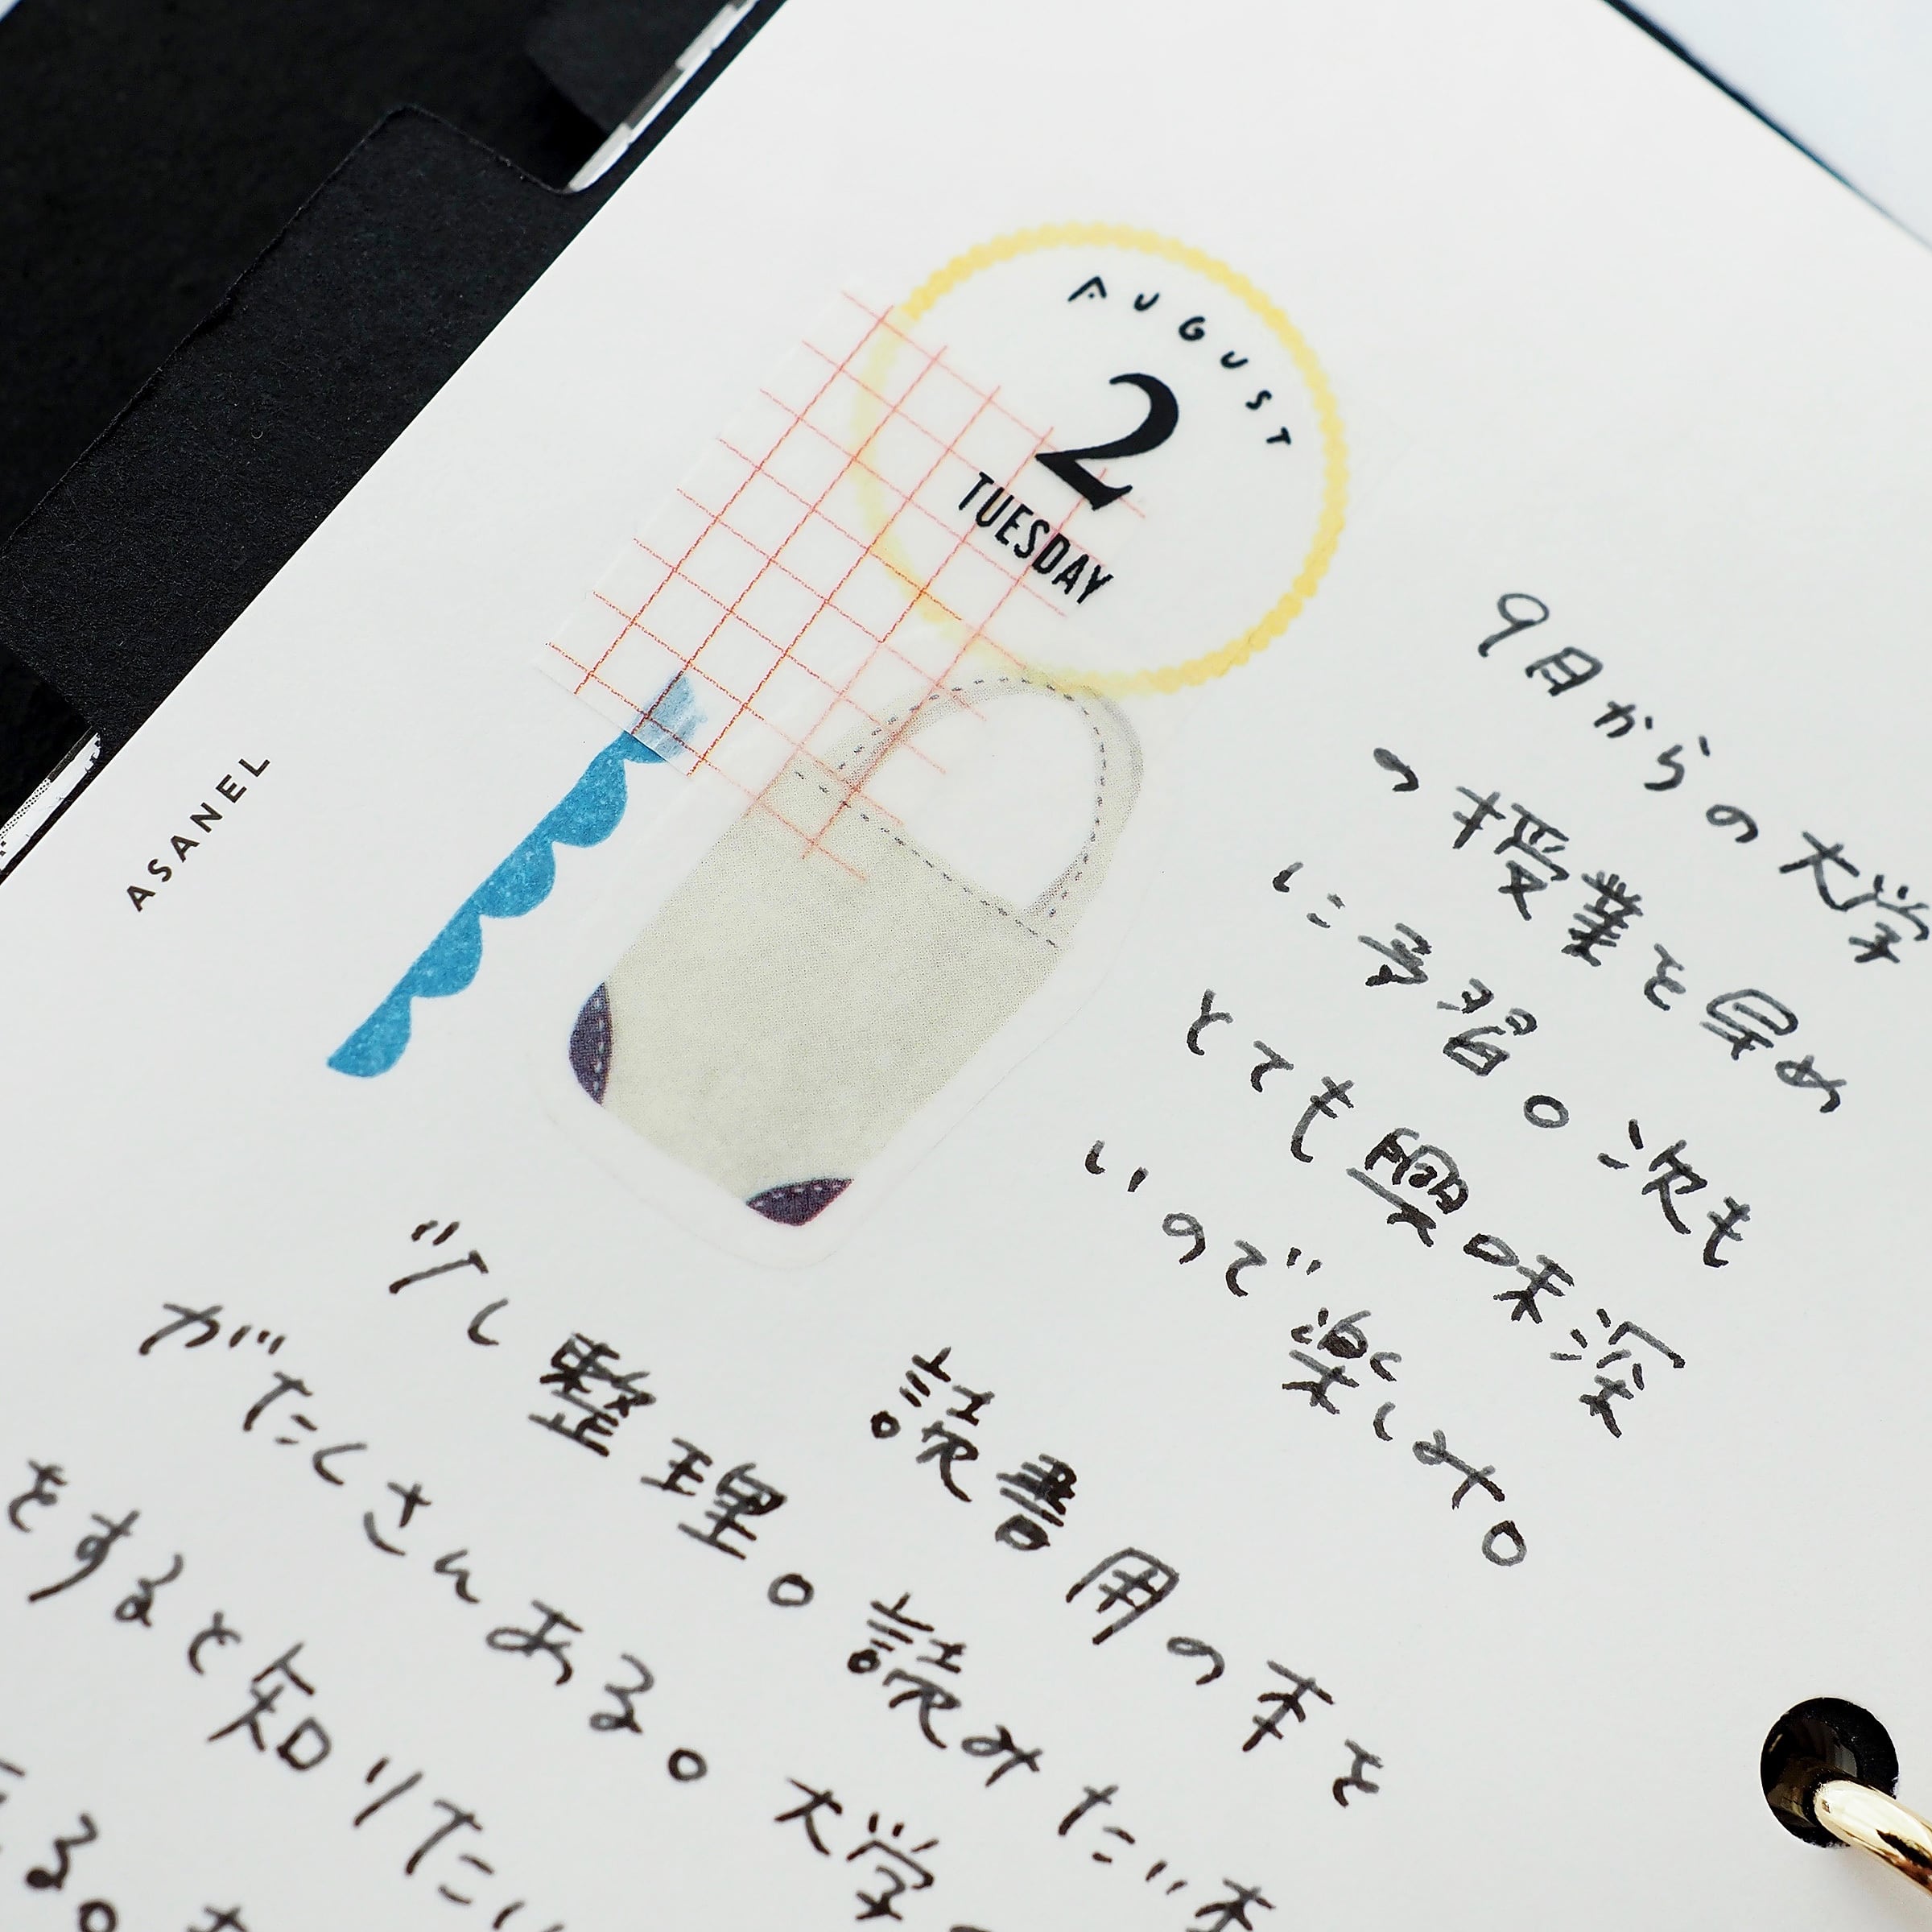 AUGUST
2
TUESDAY
ASANEL
9月からの大学
の授業を早め
に予習。次も
とても興味深
いので楽しみ。
読書用の本を
少し整理。読みたい本
がたくさんある。大学
をすると知りたい
る。